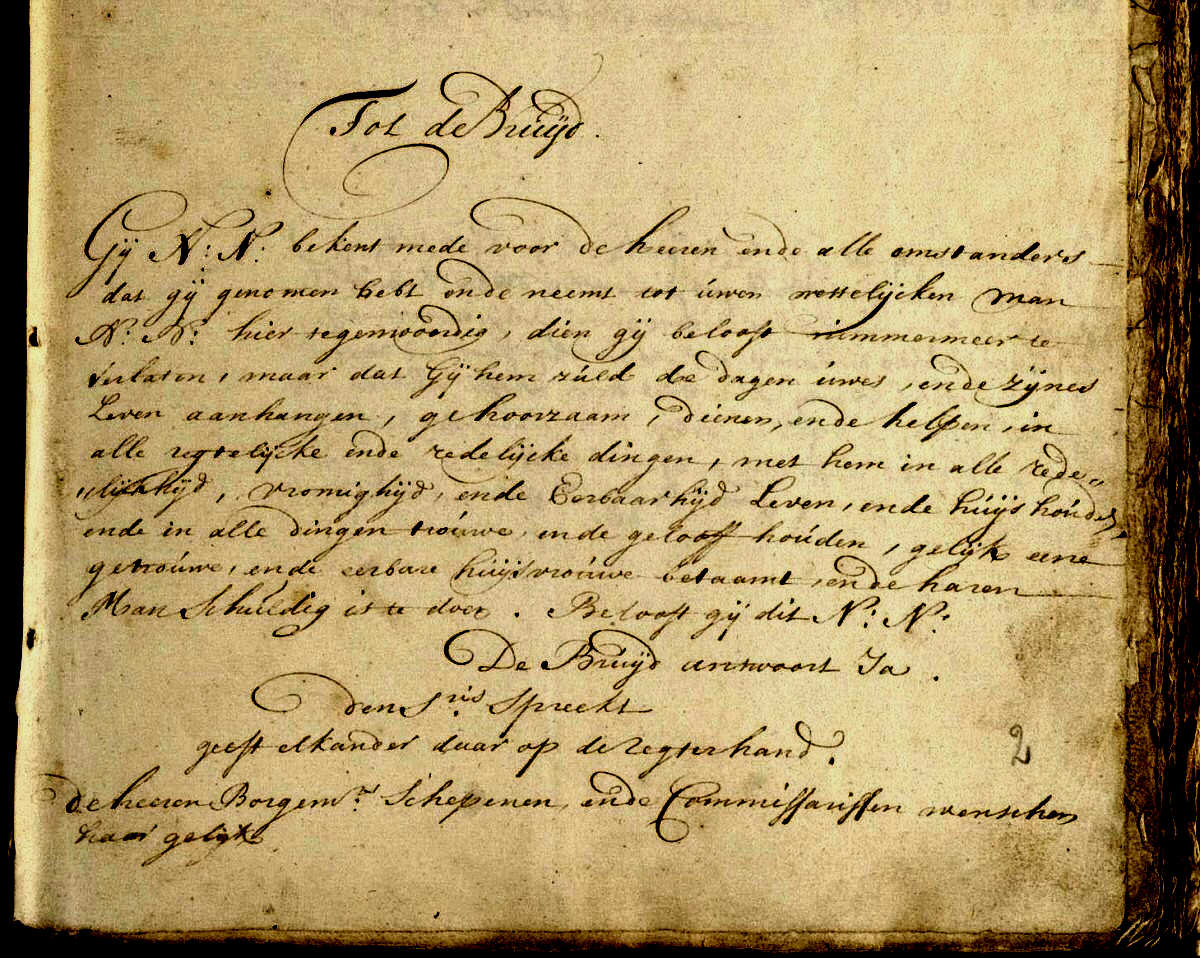 Tot de Bruijd.
Gij N: N: bekent mede voor de heeren ende alle omstanders
dat gij genomen hebt ende neemt tot úwen wettelijcken man
N: N: hier tegenwoordig, dien gij belooft nimmermeer te
verlaten, maar dat Gij hem zúld de dagen úwes, ende zijnes
Leven aanhangen, gehoorzaam, dienen, ende helpen, in
alle regtelijcke ende redelijcke dingen, met hem in alle rede„
„lijkhijd, vromighijd, ende Eerbaarhijd Leven, ende húijs hoúden,
ende in alle dingen troúwe, ende gelooff hoúden, gelijk eene
getroúwe, ende eerbare húijsvroúwe betaamt, ende haren
Man Schúldig is te doen. Belooft gij dit N: N:
De Brúijd antwoort Ja.
den S:ris Spreekt
geeft elkander daar op de regterhand.
de heeren Borgem:rs Schepenen, ende Commissarissen wenschen
haar gelúk
2